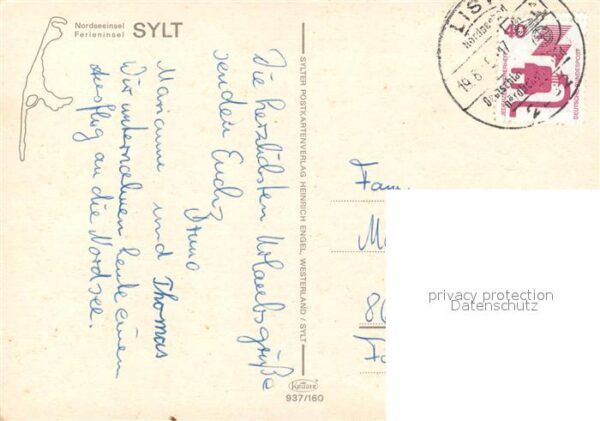 Nordseeinsel
Ferieninsel SYLT
Die herzlichsten Urlaubsgrüße
senden Euch
Bruno
Marianne und Thomas
Wir unternehmen heute einen
Ausflug an die Nordsee.
SYLTER POSTKARTENVERLAG HEINRICH ENGEL, WESTERLAND / SYLT
Krüger
937/160
LIST
Nordseebad
19.8.
40
DEUTSCHE BUNDESPOST
Fam.
privacy protection
Datenschutz